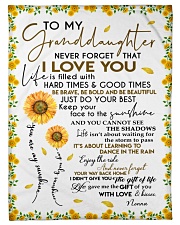 TO MY
Granddaughter
NEVER FORGET THAT
I LOVE YOU
Life is filled with
HARD TIMES & GOOD TIMES
BE BRAVE, BE BOLD AND BE BEAUTIFUL
JUST DO YOUR BEST
Keep your
face to the sunshine
AND YOU CANNOT SEE
THE SHADOWS
Life isn't about waiting for
the storm to pass
IT'S ABOUT LEARNING TO
DANCE IN THE RAIN
Enjoy the ride
And never forget
YOUR WAY BACK HOME
I DIDN'T GIVE YOU The gift of life
Life gave me the GIFT OF you
WITH LOVE &
Nonna
You are my sunshine